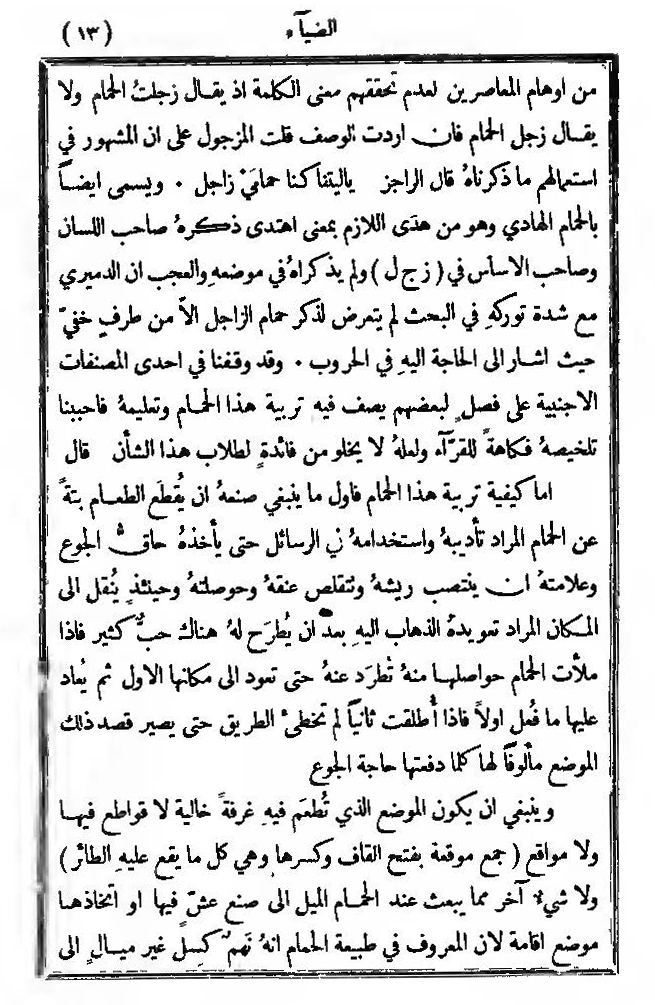 الضيآء (١٣)
من اوهام المعاصرين لعدم تحققهم معنى الكلمة اذ يقال زجلتُ الحمام ولا
يقال زجل الحمام فان اردت الوصف قلت المزجول على ان المشهور في
استعمالهم ما ذكرناهُ قال الراجز ياليتنا كنا حمامَيْ زاجل ٠ ويسمى ايضاً
بالحمام الهادي وهو من هدَى اللازم بمعنى اهتدى ذكرهُ صاحب اللسان
وصاحب الاساس في ( زج ل ) ولم يذكراهُ في موضعهِ والعجب ان الدميري
مع شدة توركهِ في البحث لم يتعرض لذكر حمام الزاجل الاَّ من طرفٍ خفيّ
حيث اشار الى الحاجة اليهِ في الحروب ٠ وقد وقفنا في احدى المصنفات
الاجنبية على فصلٍ لبعضهم يصف فيه تربية هذا الحمام وتعليمهُ فاحببنا
تلخيصهُ فكاهةً للقرّآء ولعلهُ لا يخلو من فائدةٍ لطلاب هذا الشأن قال
اما كيفية تربية هذا الحمام فاول ما ينبغي صنعهُ ان يُقطَع الطعام بتةً
عن الحمام المراد تأديبهُ واستخدامهُ في الرسائل حتى يأخذهُ حاقّ الجوع
وعلامتهُ ان ينتصب ريشهُ وتتقلص عنقهُ وحوصلتهُ وحينئذٍ يُنقل الى
المكان المراد تعويدهُ الذهاب اليهِ بعد ان يُطرَح لهُ هناك حبٌّ كثير فاذا
ملأت الحمام حواصلها منهُ تُطرَد عنهُ حتى تعود الى مكانها الاول ثم يُعاد
عليها ما فُعل اولاً فاذا أُطلقت ثانياً لم تخطئ الطريق حتى يصير قصد ذلك
الموضع مألوفاً لها كلما دفعتها حاجة الجوع
وينبغي ان يكون الموضع الذي تُطعَم فيهِ غرفةً خالية لا قواطع فيها
ولا مواقع ( جمع موقعة بفتح القاف وكسرها وهي كل ما يقع عليهِ الطائر )
ولا شيء آخر مما يبعث عند الحمام الميل الى صنع عشّ فيها او اتخاذها
موضع اقامة لان المعروف في طبيعة الحمام انهُ نَهِمٌ كَسِلٌ غير ميالٍ الى